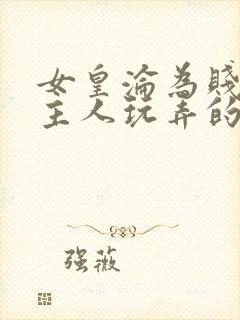 女皇淪為賤
主人玩弄的
强薇